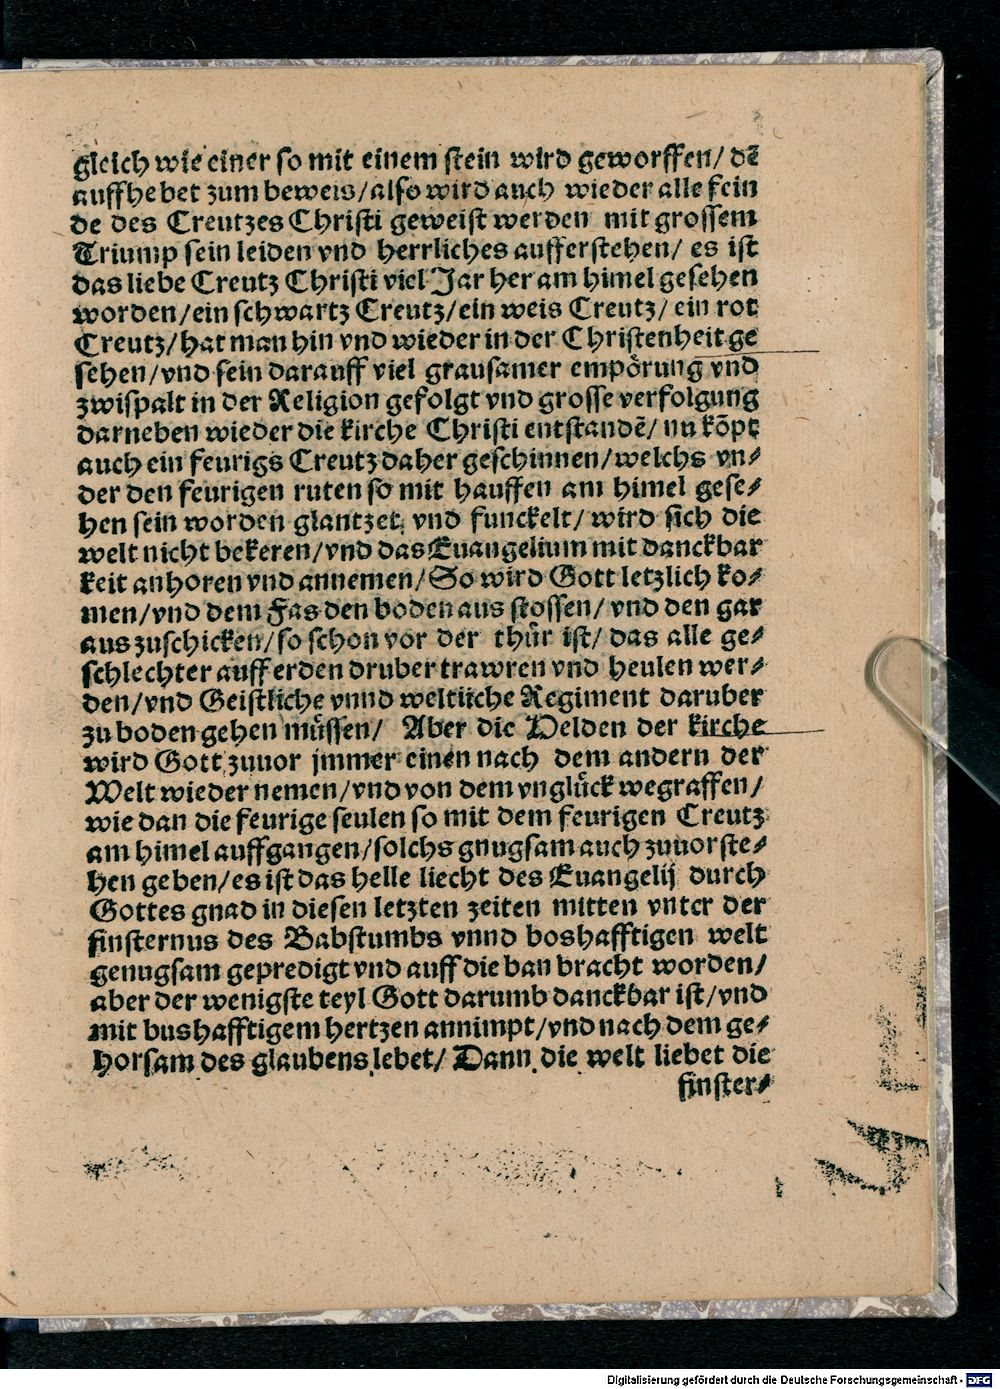 gleich wie einer so mit einem stein wird geworffen/ dē
auffhebet zum beweis/also wird auch wieder alle fein
de des Creutzes Christi geweist werden mit grossem
Triump sein leiden vnd herrliches aufferstehen/ es ist
das liebe Creutz Christi viel Jar her am himel gesehen
worden/ein schwartz Creutz/ein weis Creutz/ ein rot
Creutz/hat man hin vnd wieder in der Christenheit ge
sehen/vnd sein darauff viel grausamer empörung vnd
zwispalt in der Religion gefolgt vnd grosse verfolgung
darneben wieder die kirche Christi entstandē/ nu kōpt
auch ein feurigs Creutz daher geschinnen/welchs vn⸗
der den feurigen ruten so mit hauffen am himel gese⸗
hen sein worden glantzet vnd funckelt/ wird sich die
welt nicht bekeren/vnd das Euangelium mit danckbar
keit anhoren vnd annemen/So wird Gott letzlich ko⸗
men/vnd dem Fas den boden aus stossen/ vnd den gar
aus zuschicken/so schon vor der thür ist/ das alle ge⸗
schlechter auff erden druber trawren vnd heulen wer⸗
den/vnd Geistliche vnnd weltliche Regiment daruber
zu boden gehen müssen/ Aber die Helden der kirche
wird Gott zuuor jmmer einen nach dem andern der
Welt wieder nemen/vnd von dem vnglück wegraffen/
wie dan die feurige seulen so mit dem feurigen Creutz
am himel auffgangen/solchs gnugsam auch zuuorste⸗
hen geben/es ist das helle liecht des Euangelij durch
Gottes gnad in diesen letzten zeiten mitten vnter der
finsternus des Babstumbs vnnd boshafftigen welt
genugsam gepredigt vnd auff die ban bracht worden/
aber der wenigste teyl Gott darumb danckbar ist/vnd
mit bushafftigem hertzen annimpt/vnd nach dem ge⸗
horsam des glaubens lebet/ Dann die welt liebet die
finster⸗
Digitalisierung gefördert durch die Deutsche Forschungsgemeinschaft - DFG